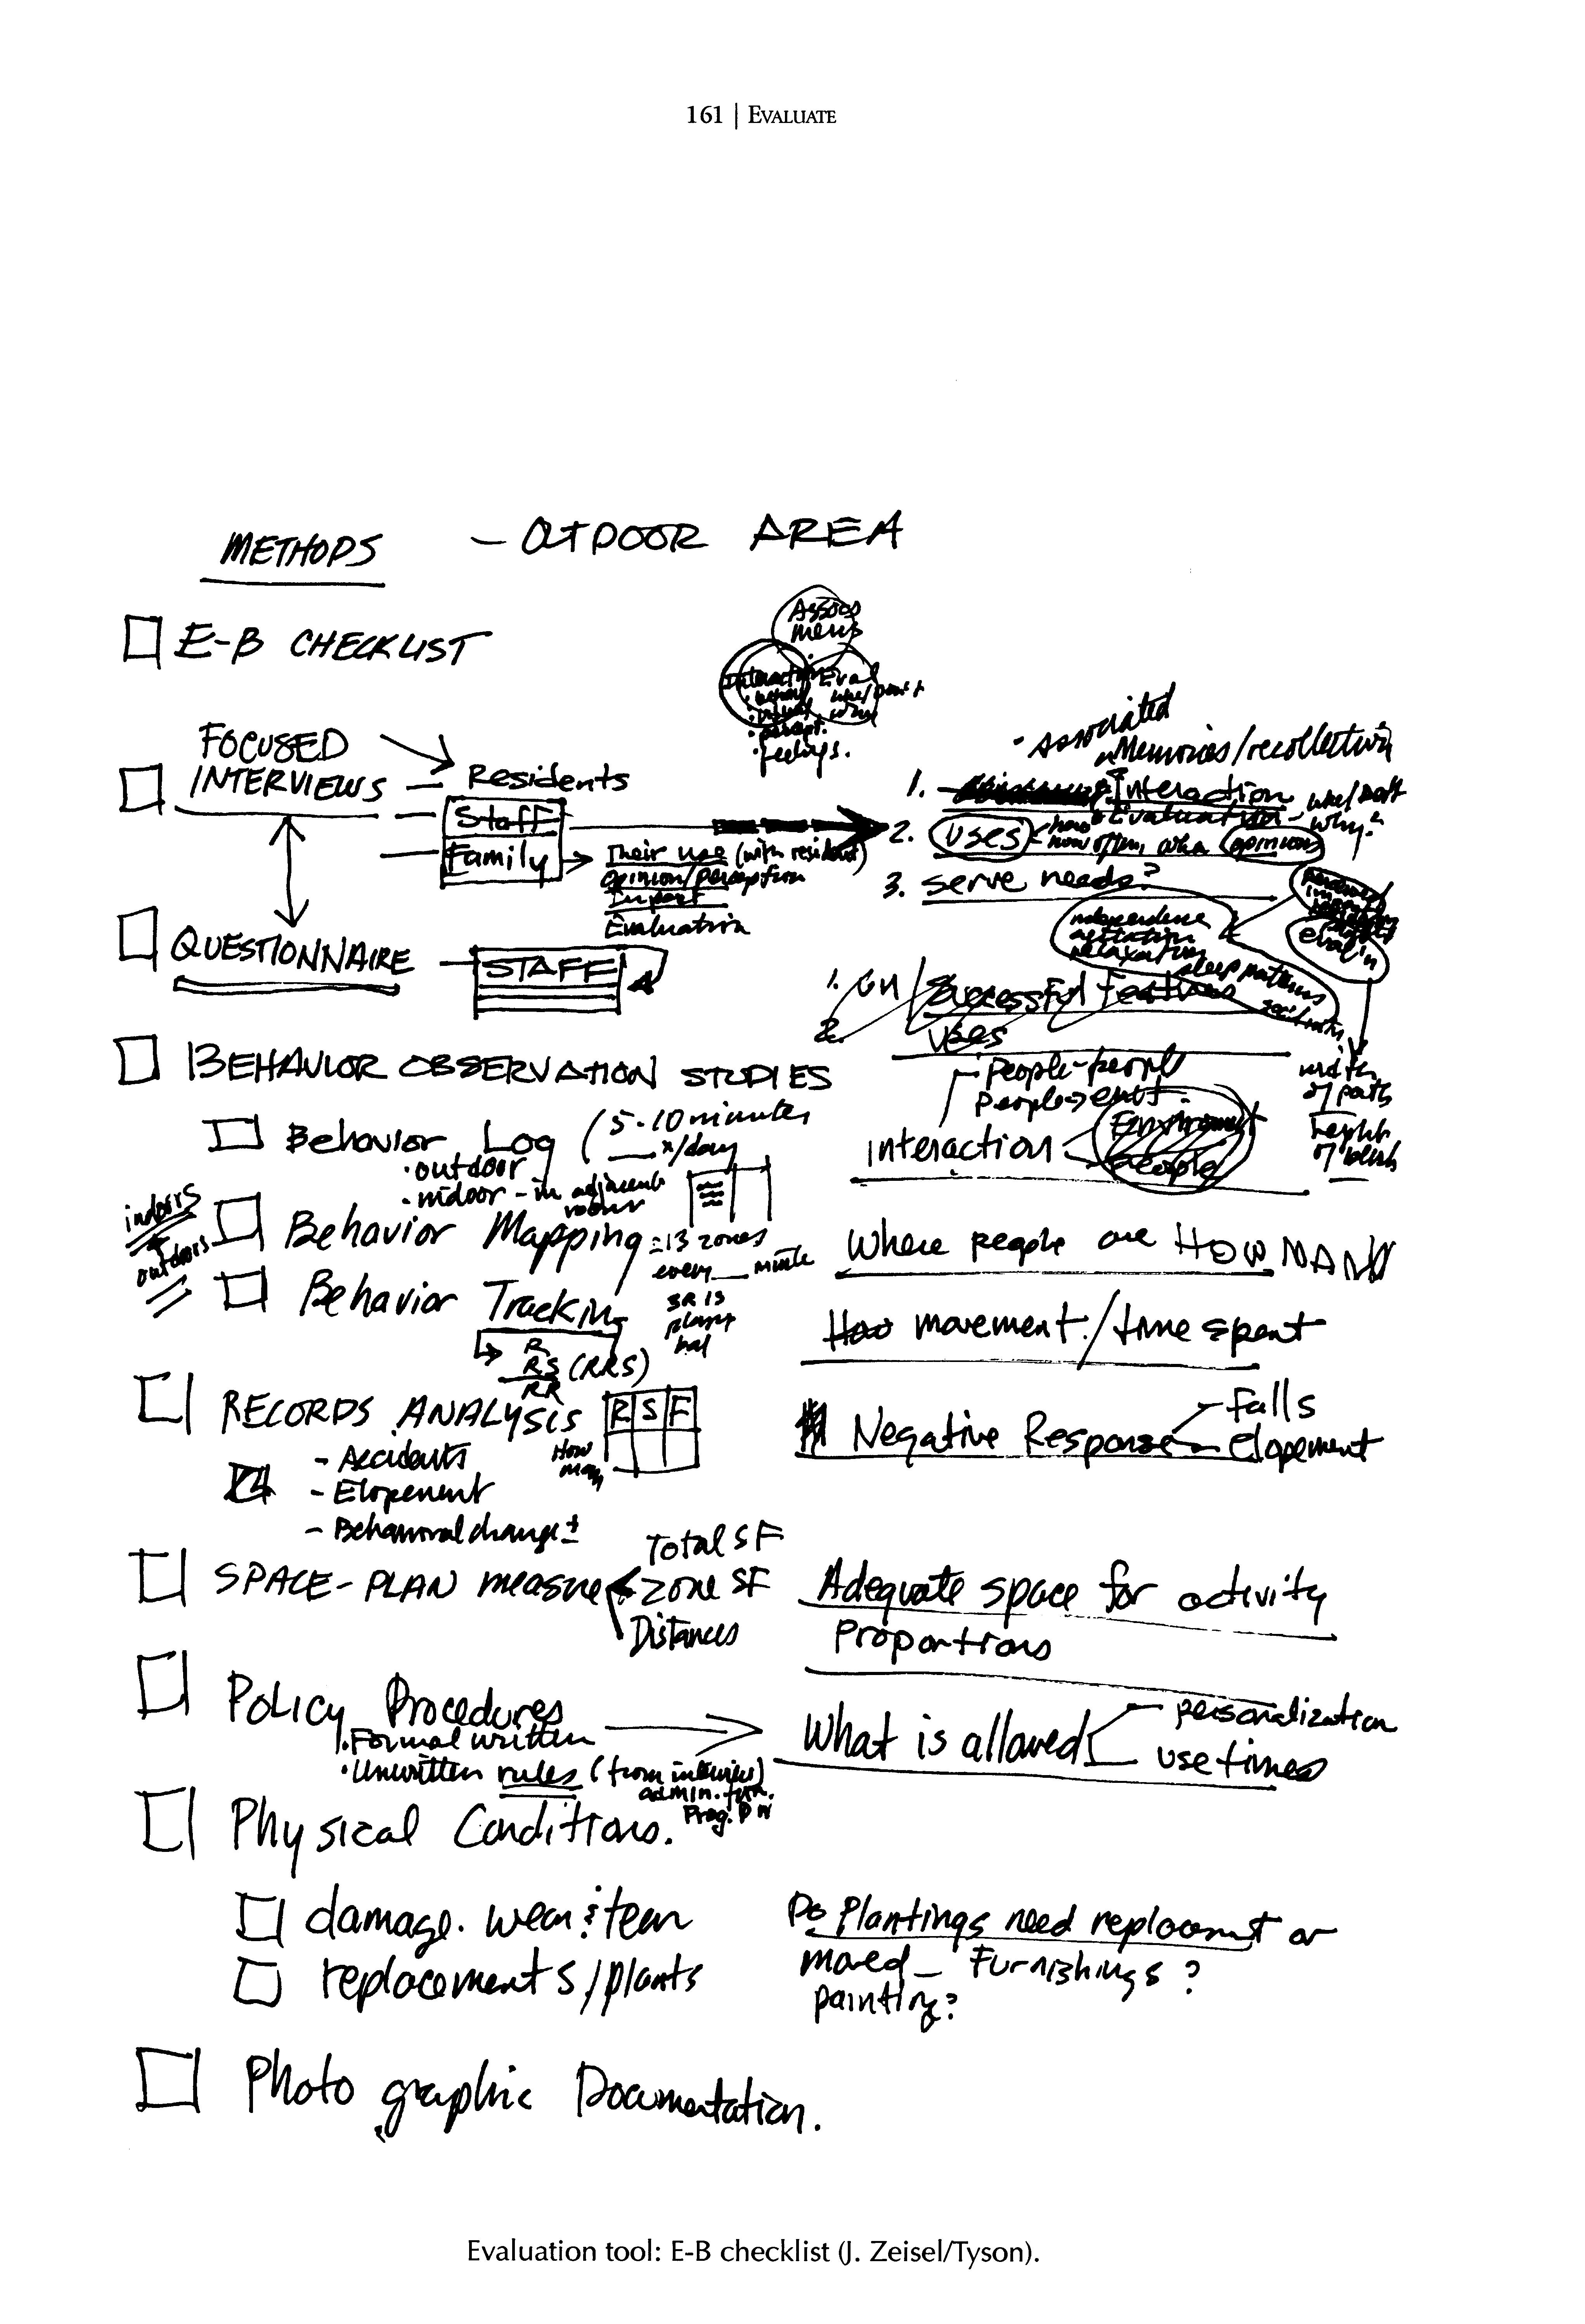 161 | EVALUATE
METHODS — OUTDOOR AREA
E-B CHECKLIST
Assoc
mems
Interaction
Eval
percept.
feelings.
FOCUSED
INTERVIEWS — Residents
— Staff
— Family
Their use (with resident)
opinion/perception
Impact
Evaluation
• Associated
Memories/recollection
1. Interaction
Evaluation - like/don't
why?
2. uses how
how often, who opinions
3. serve needs?
independence
agitation
relaxation
sleep patterns
eval'n
QUESTIONNAIRE — STAFF
1. Successful Features
2. Uses
width
of path
height
of bench
BEHAVIOR OBSERVATION STUDIES
People-people
People→envt.
Behavior Log (5-10 minutes
__x/day
• outdoor
• indoor - in adjacent
rooms
Interaction Environment
people
indoors
outdoors
Behavior Mapping = 13 zones
every __ minute
Where people are HOW MANY
Behavior Tracking
R
RS (RRS)
RR
How movement/time spent
RECORDS ANALYSIS R S F
How
many
- Accidents
- Elopement
- Behavioral change ±
Negative Response - Falls
- Elopement
SPACE-PLAN measure Total SF
Zone SF
Distances
Adequate space for activity
Proportions
Policy Procedures
• Formal written
• Unwritten rules (from interviews)
What is allowed - personalization
use times
Physical Conditions.
damage. wear & tear
replacements/plants
Do Plantings need replacement or
moved — Furnishings?
painting?
Photographic Documentation.
Evaluation tool: E-B checklist (J. Zeisel/Tyson).